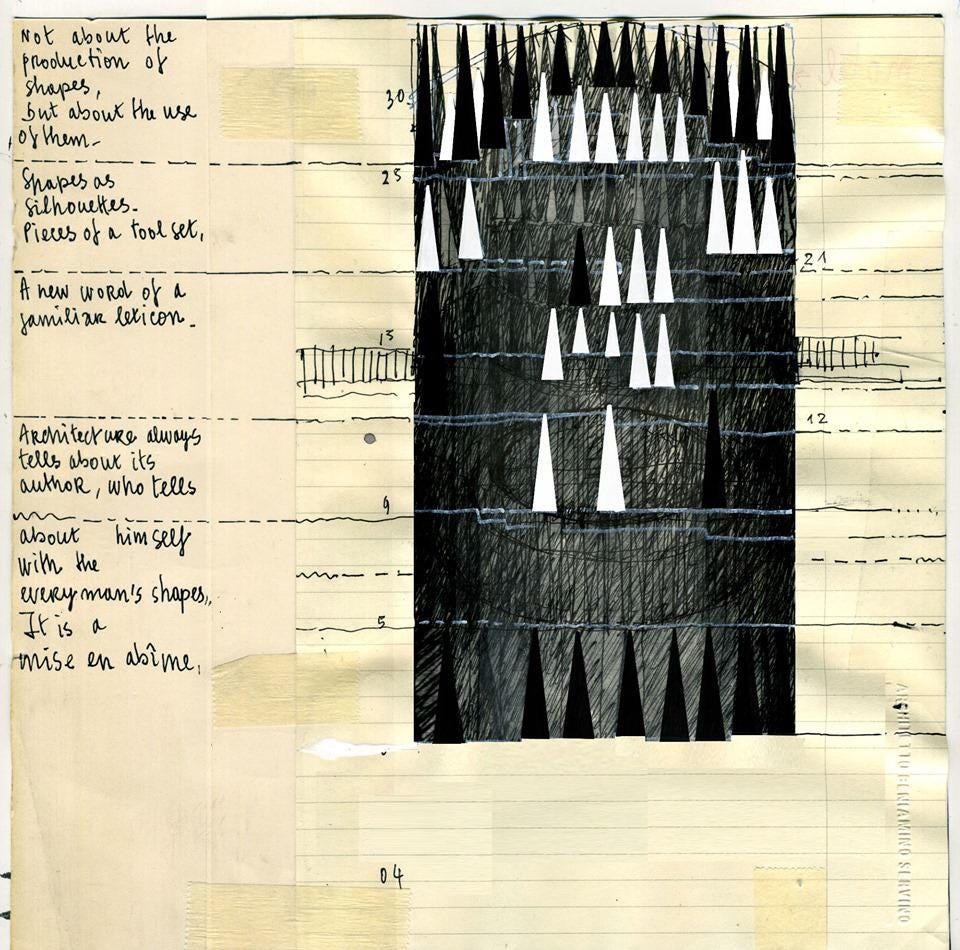 Not about the
production of
shapes,
but about the use
of them.
Shapes as
silhouettes.
Pieces of a tool set,
A new word of a
familiar lexicon.
Architecture always
tells about its
author, who tells
about himself
with the
everyman's shapes,
It is a
mise en abîme,
30
25
21
15
12
9
5
04
ARCHITETTO BENIAMINO SERVINO